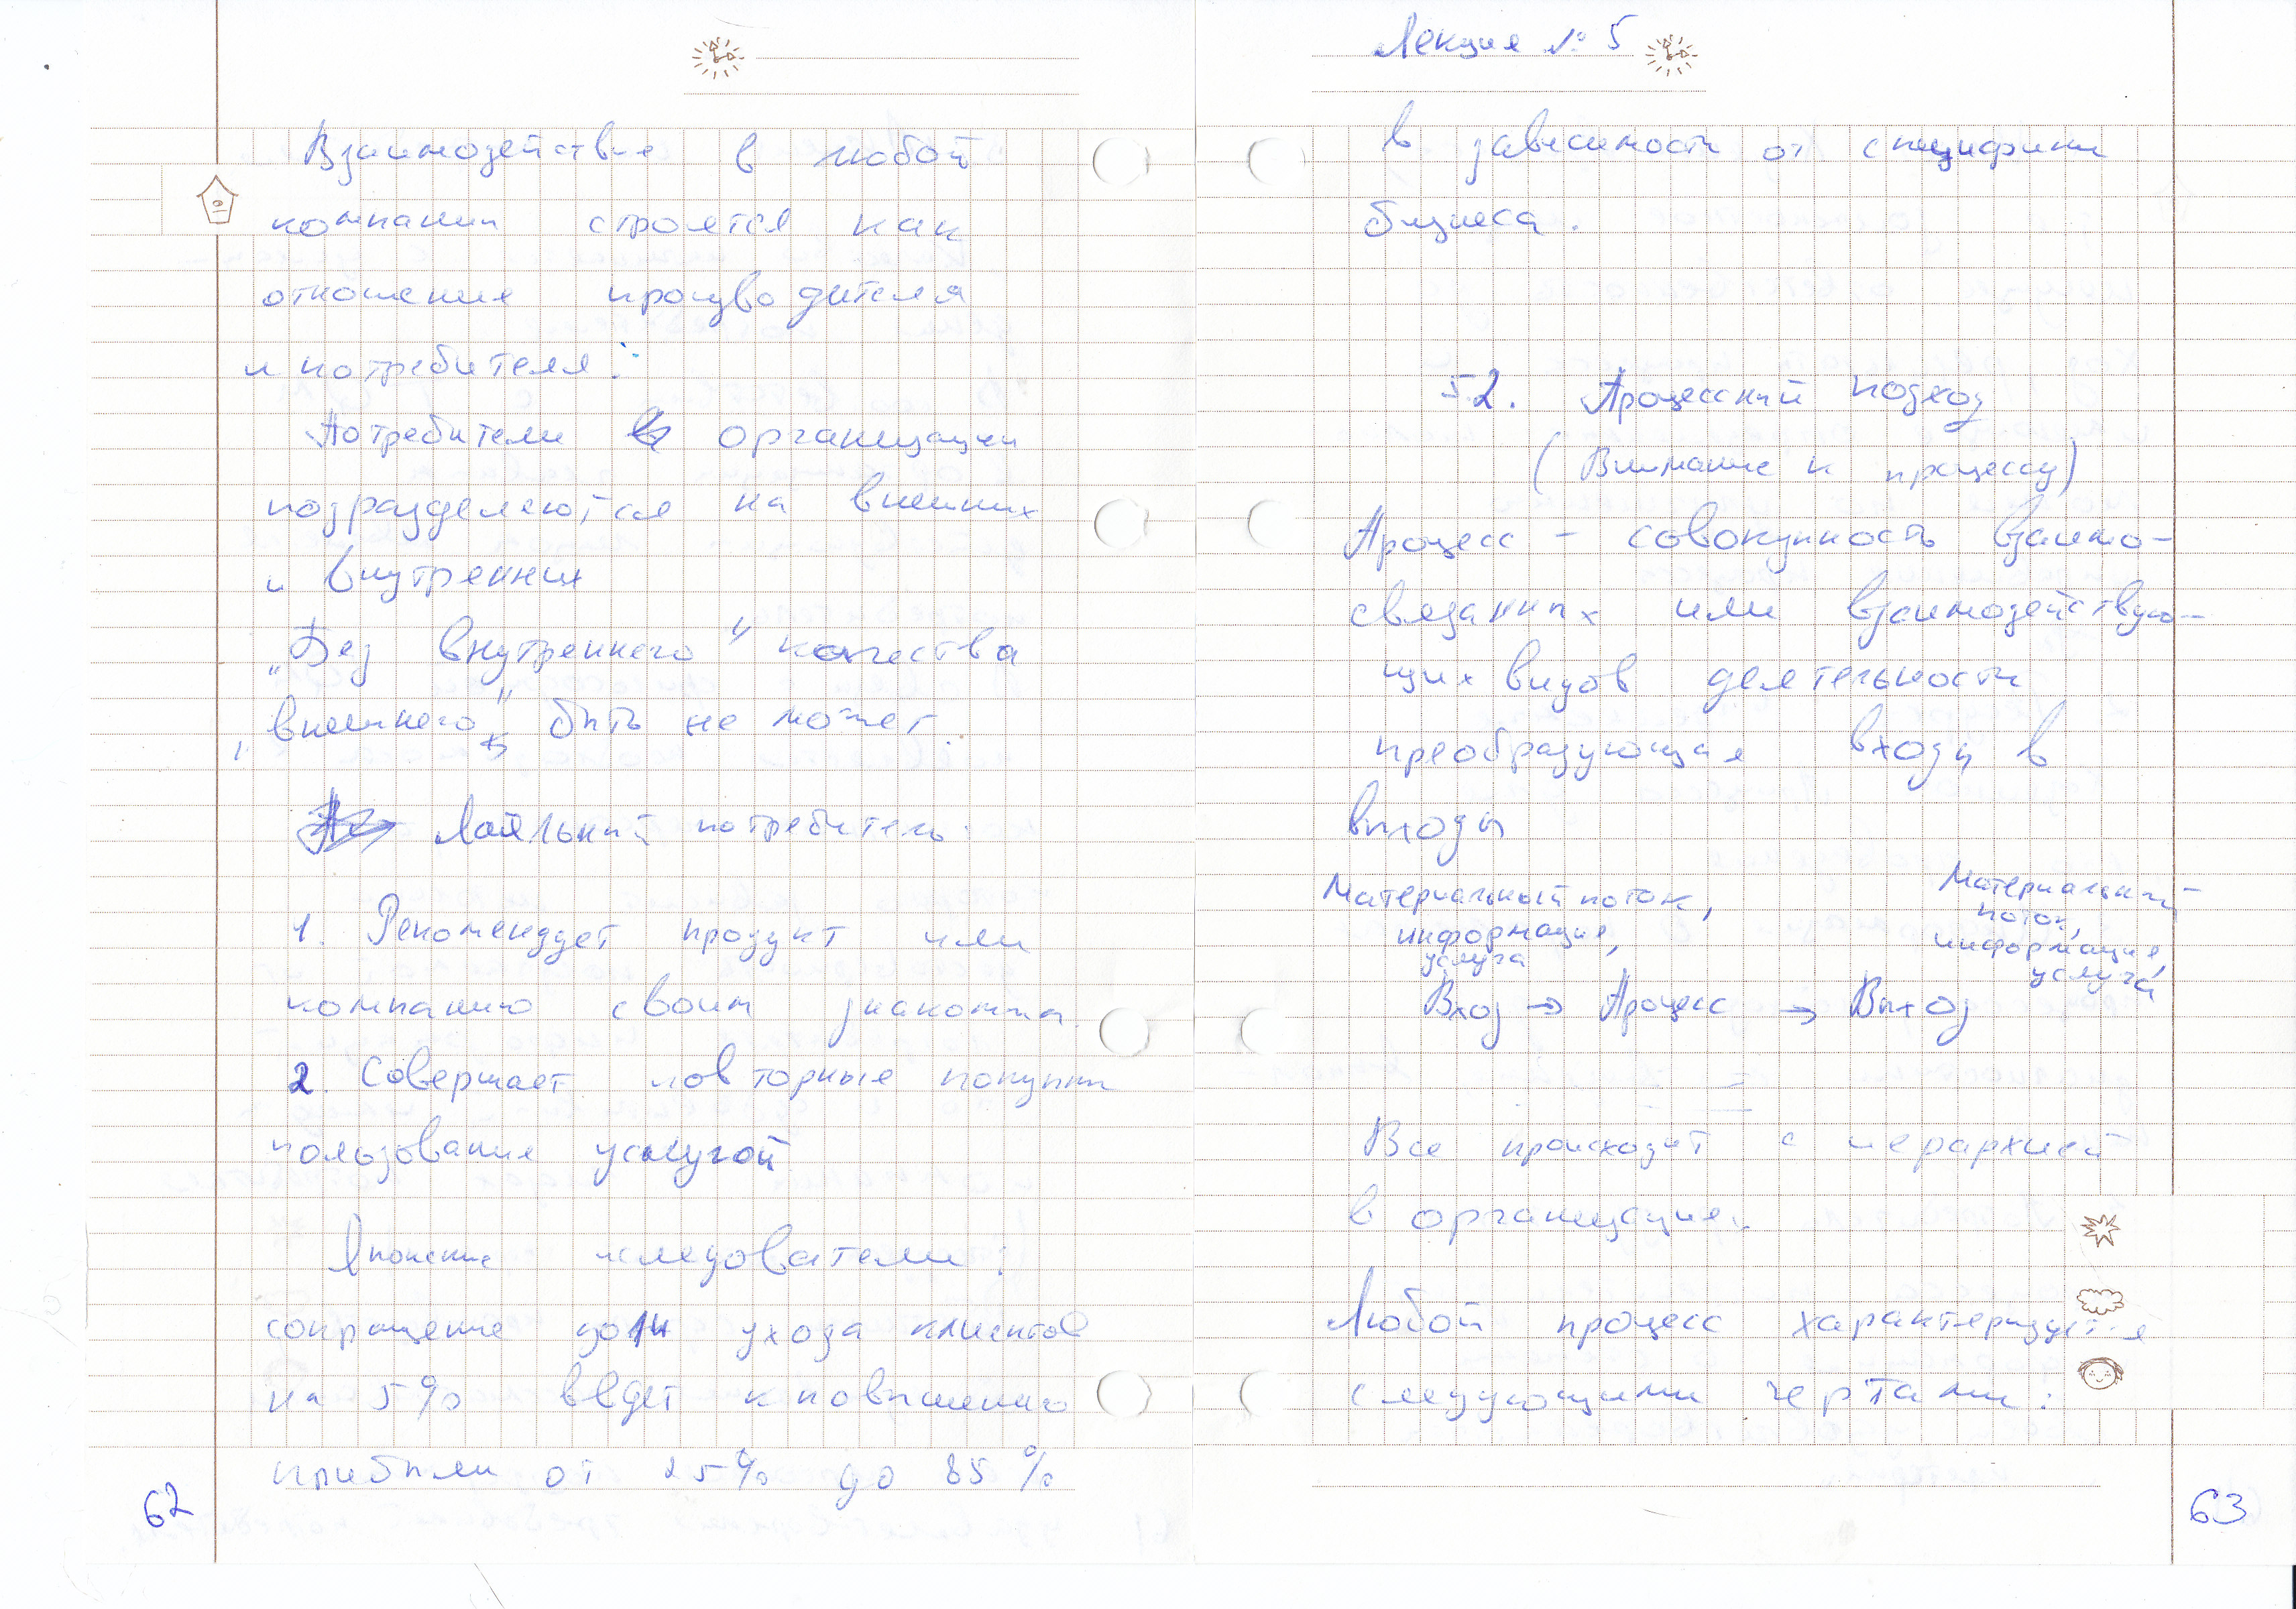 Взаимодействие в любой
компании строятся как
отношения производителя
и потребителя:
Потребители организации
подразделяются на внешних
и внутренних
„Без внутреннего" качества
„внешнего" быть не может.
Лояльный потребитель:
1. Рекомендует продукт или
компанию своим знакомым.
2. Совершает повторные покупки
пользование услугой
Японские исследователи:
сокращение доли ухода клиентов
на 5% ведет к повышению
прибыли от 25% до 85%
62
Лекция № 5
в зависимости от специфики
бизнеса.
5.2. Процессный подход
(Внимание к процессу)
Процесс - совокупность взаимо-
связанных или взаимодействую-
щих видов деятельности
преобразующая входы в
выходы
Материальный поток,
информация,
услуга
Материальный
поток,
информация,
услуга
Вход → Процесс → Выход
Все происходит с иерархией
в организации.
Любой процесс характеризуется
следующими чертами:
63